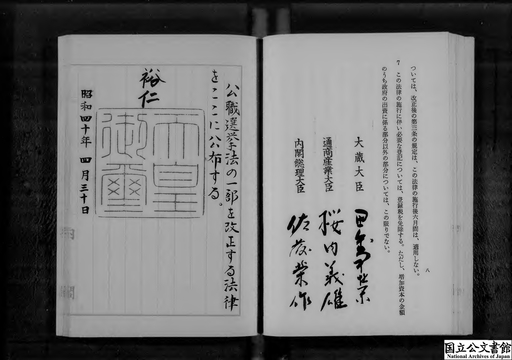 ついては、改正後の第三条の規定は、この法律の施行後六月間は、適用しない。
7 この法律の施行に伴い必要な登記については、登録税を免除する。ただし、増加資本の金額
のうち政府の出資に係る部分以外の部分については、この限りでない。
八
大蔵大臣 田中角栄
通商産業大臣 桜内義雄
内閣総理大臣 佐藤栄作
公職選挙法の一部を改正する法律
をここに公布する。
裕仁
天皇
御璽
昭和四十年四月三十日
国立公文書館
National Archives of Japan